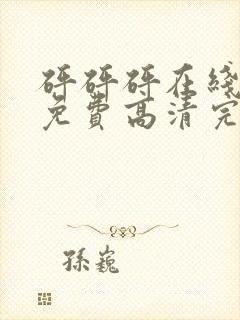 砰砰砰在线
免费高清完
孫巍